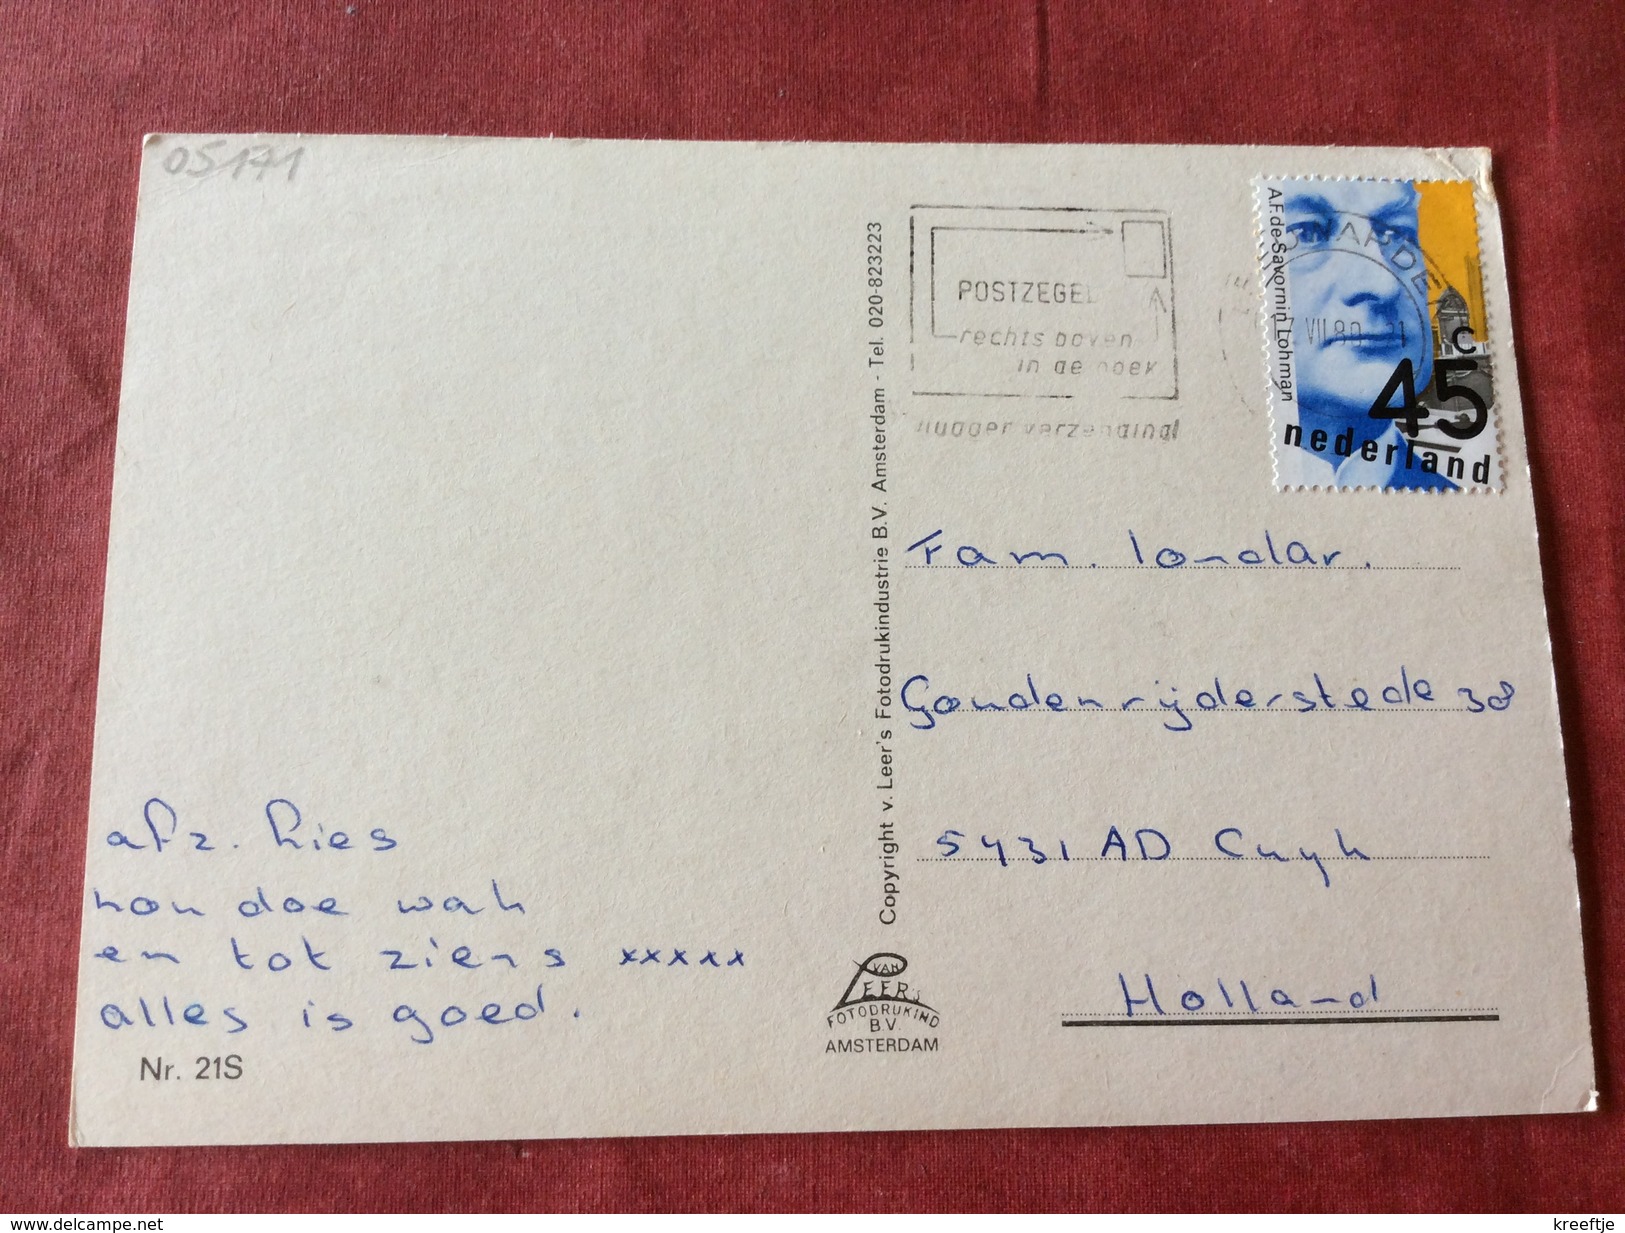 05171
afz. Lies
nou doe wah
en tot ziens xxxxx
alles is goed.
Nr. 21S
Copyright v. Leer's Fotodrukindustrie B.V. Amsterdam - Tel. 020-823223
VAN
LEER'S
FOTODRUKIND
B.V.
AMSTERDAM
POSTZEGEL
rechts boven
in de hoek
vlugger verzending!
NAARDEN
VII.80
A.F. de Savornin Lohman
c
45
nederland
Fam. londar.
Goudenrijderstede 38
5431 AD Cuyk
Holland
www.delcampe.net
kreeftje